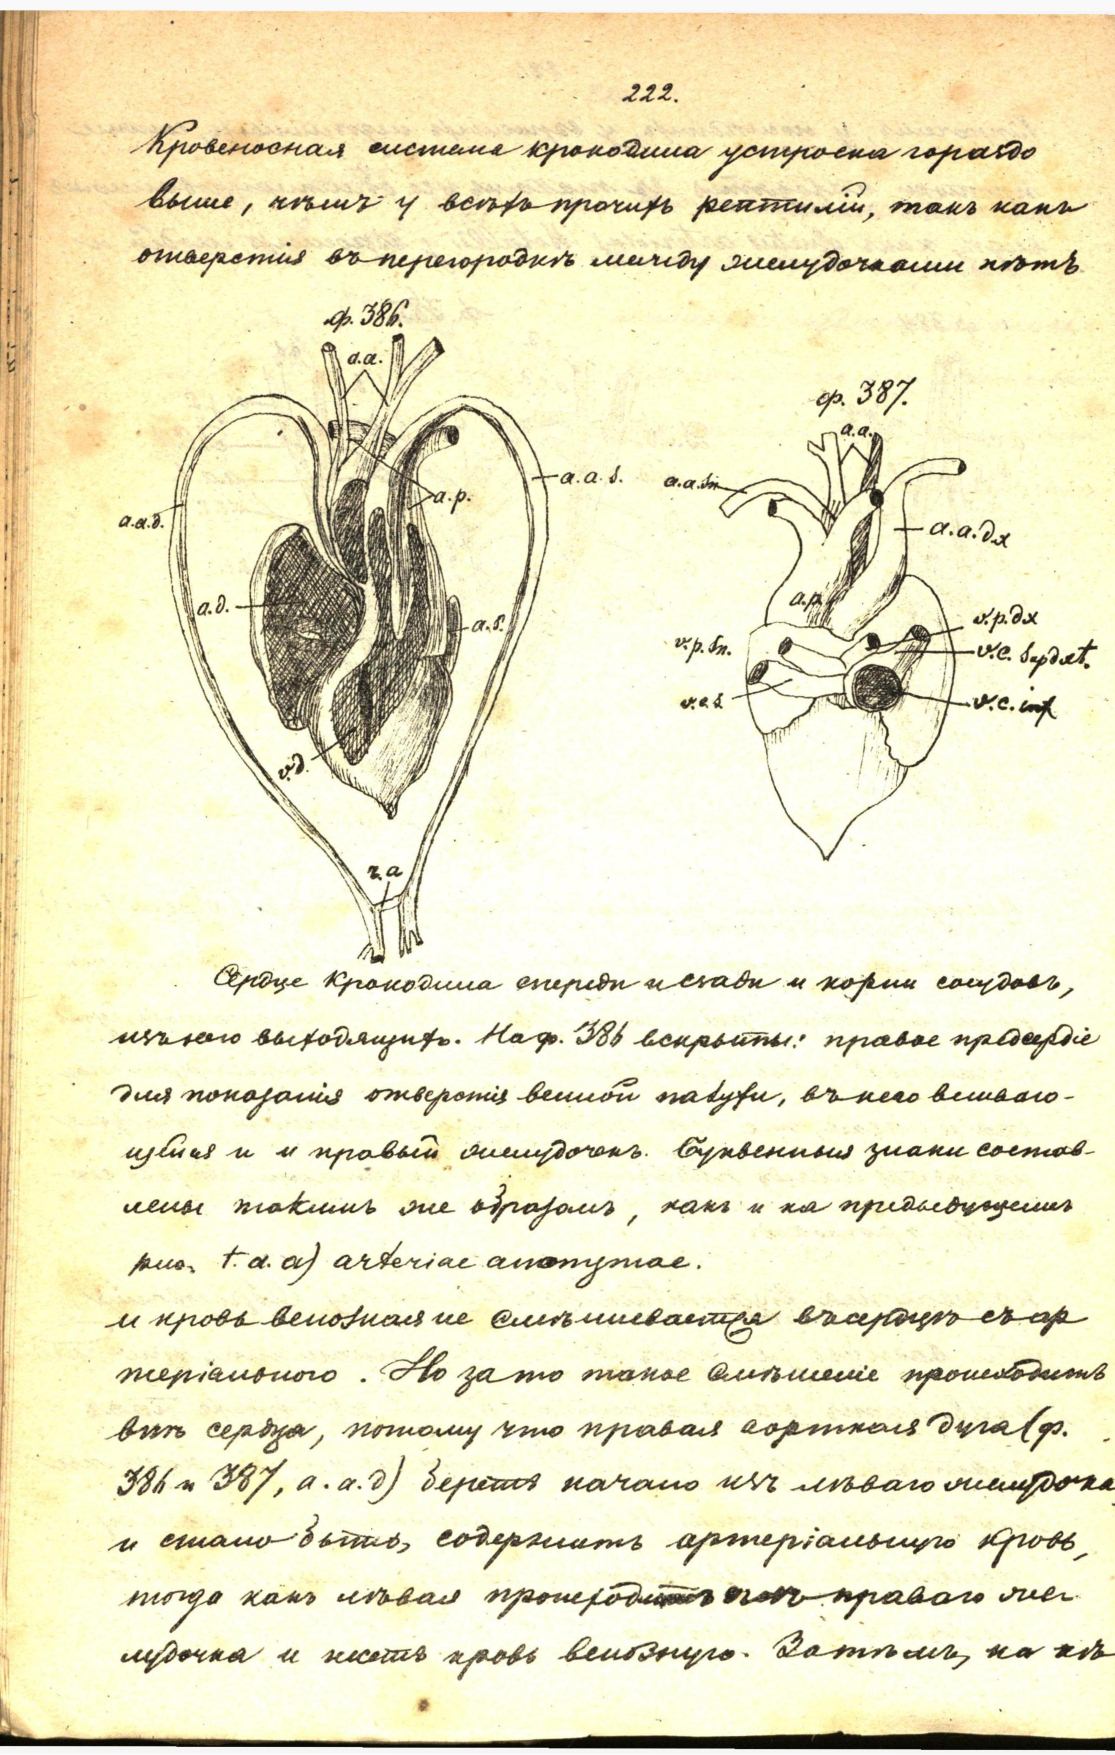 222.
Кровеносная система крокодила устроена гораздо
выше, чѣмъ у всѣхъ прочихъ рептилій, такъ какъ
отверстія въ перегородкѣ между желудочками нѣтъ
ф. 386.
a.a.
ф. 387.
a.a.
a.a.s.
a.a.sn
a.p.
a.a.d.
a.a.dx
a.d.
a.p.
a.s.
v.p.dx
v.p.sn.
v.c. sup dxt.
v.c.s.
v.c. inf
v.d.
r.a
Сердце крокодила спереди и сзади и корни сосудовъ,
изъ него выходящихъ. На ф. 386 вскрыты: правое предсердіе
для показанія отверстія венной пазухи, въ него вливаю-
щейся и и правый желудочекъ. Буквенныя знаки состав-
лены такимъ же образомъ, какъ и на предыдущемъ
рис. t. a. a) arteriae anonymae.
и кровь венозная не смѣшивается въ сердцѣ съ ар
теріальною. Но за то такое смѣшеніе происходитъ
внѣ сердца, потому что правая аортная дуга (ф.
386 и 387, a. a. d) беретъ начало изъ лѣваго желудочка
и стало быть, содержитъ артеріальную кровь,
тогда какъ лѣвая происходитъ изъ праваго же
лудочка и несетъ кровь венозную. Затѣмъ, на нѣ